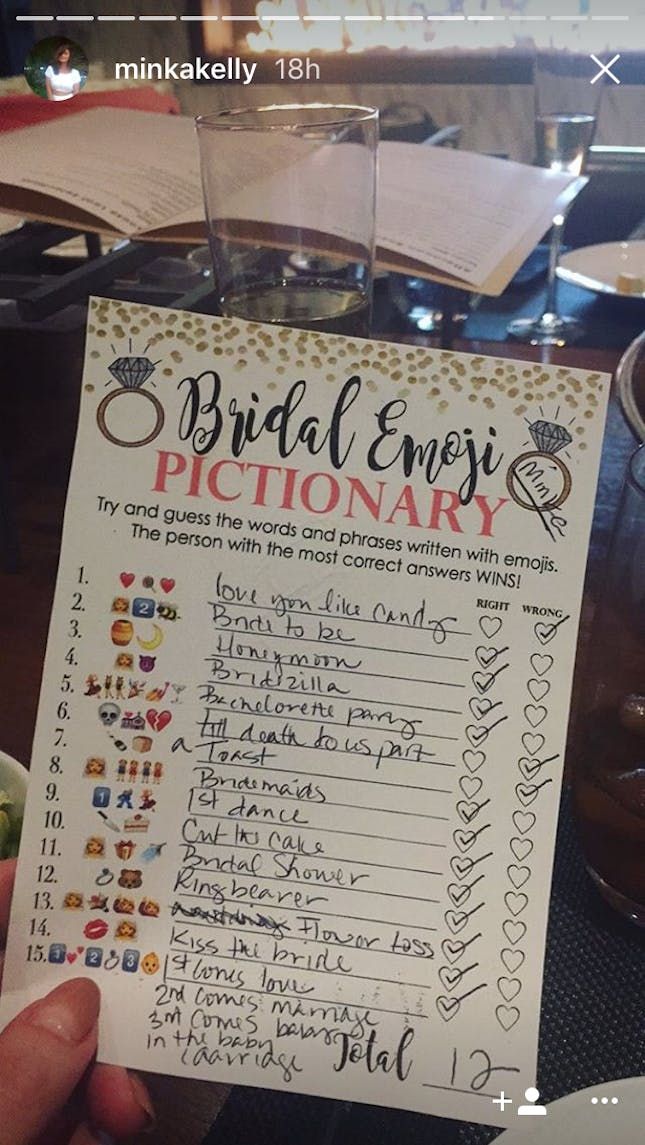 minkakelly 18h
Bridal Emoji
PICTIONARY
Minke
Try and guess the words and phrases written with emojis.
The person with the most correct answers WINS!
RIGHT WRONG
1. love you like candy
2. Bride to be
3. Honeymoon
4. Bridezilla
5. Bachelorette party
6. till death do us part
7. a Toast
8. Bridemaids
9. 1st dance
10. Cut the cake
11. Bridal Shower
12. Ring bearer
13. Flower toss
14. Kiss the bride
15. 1st comes love
2nd comes marriage
3rd comes baby
in the baby
carriage
Total 12